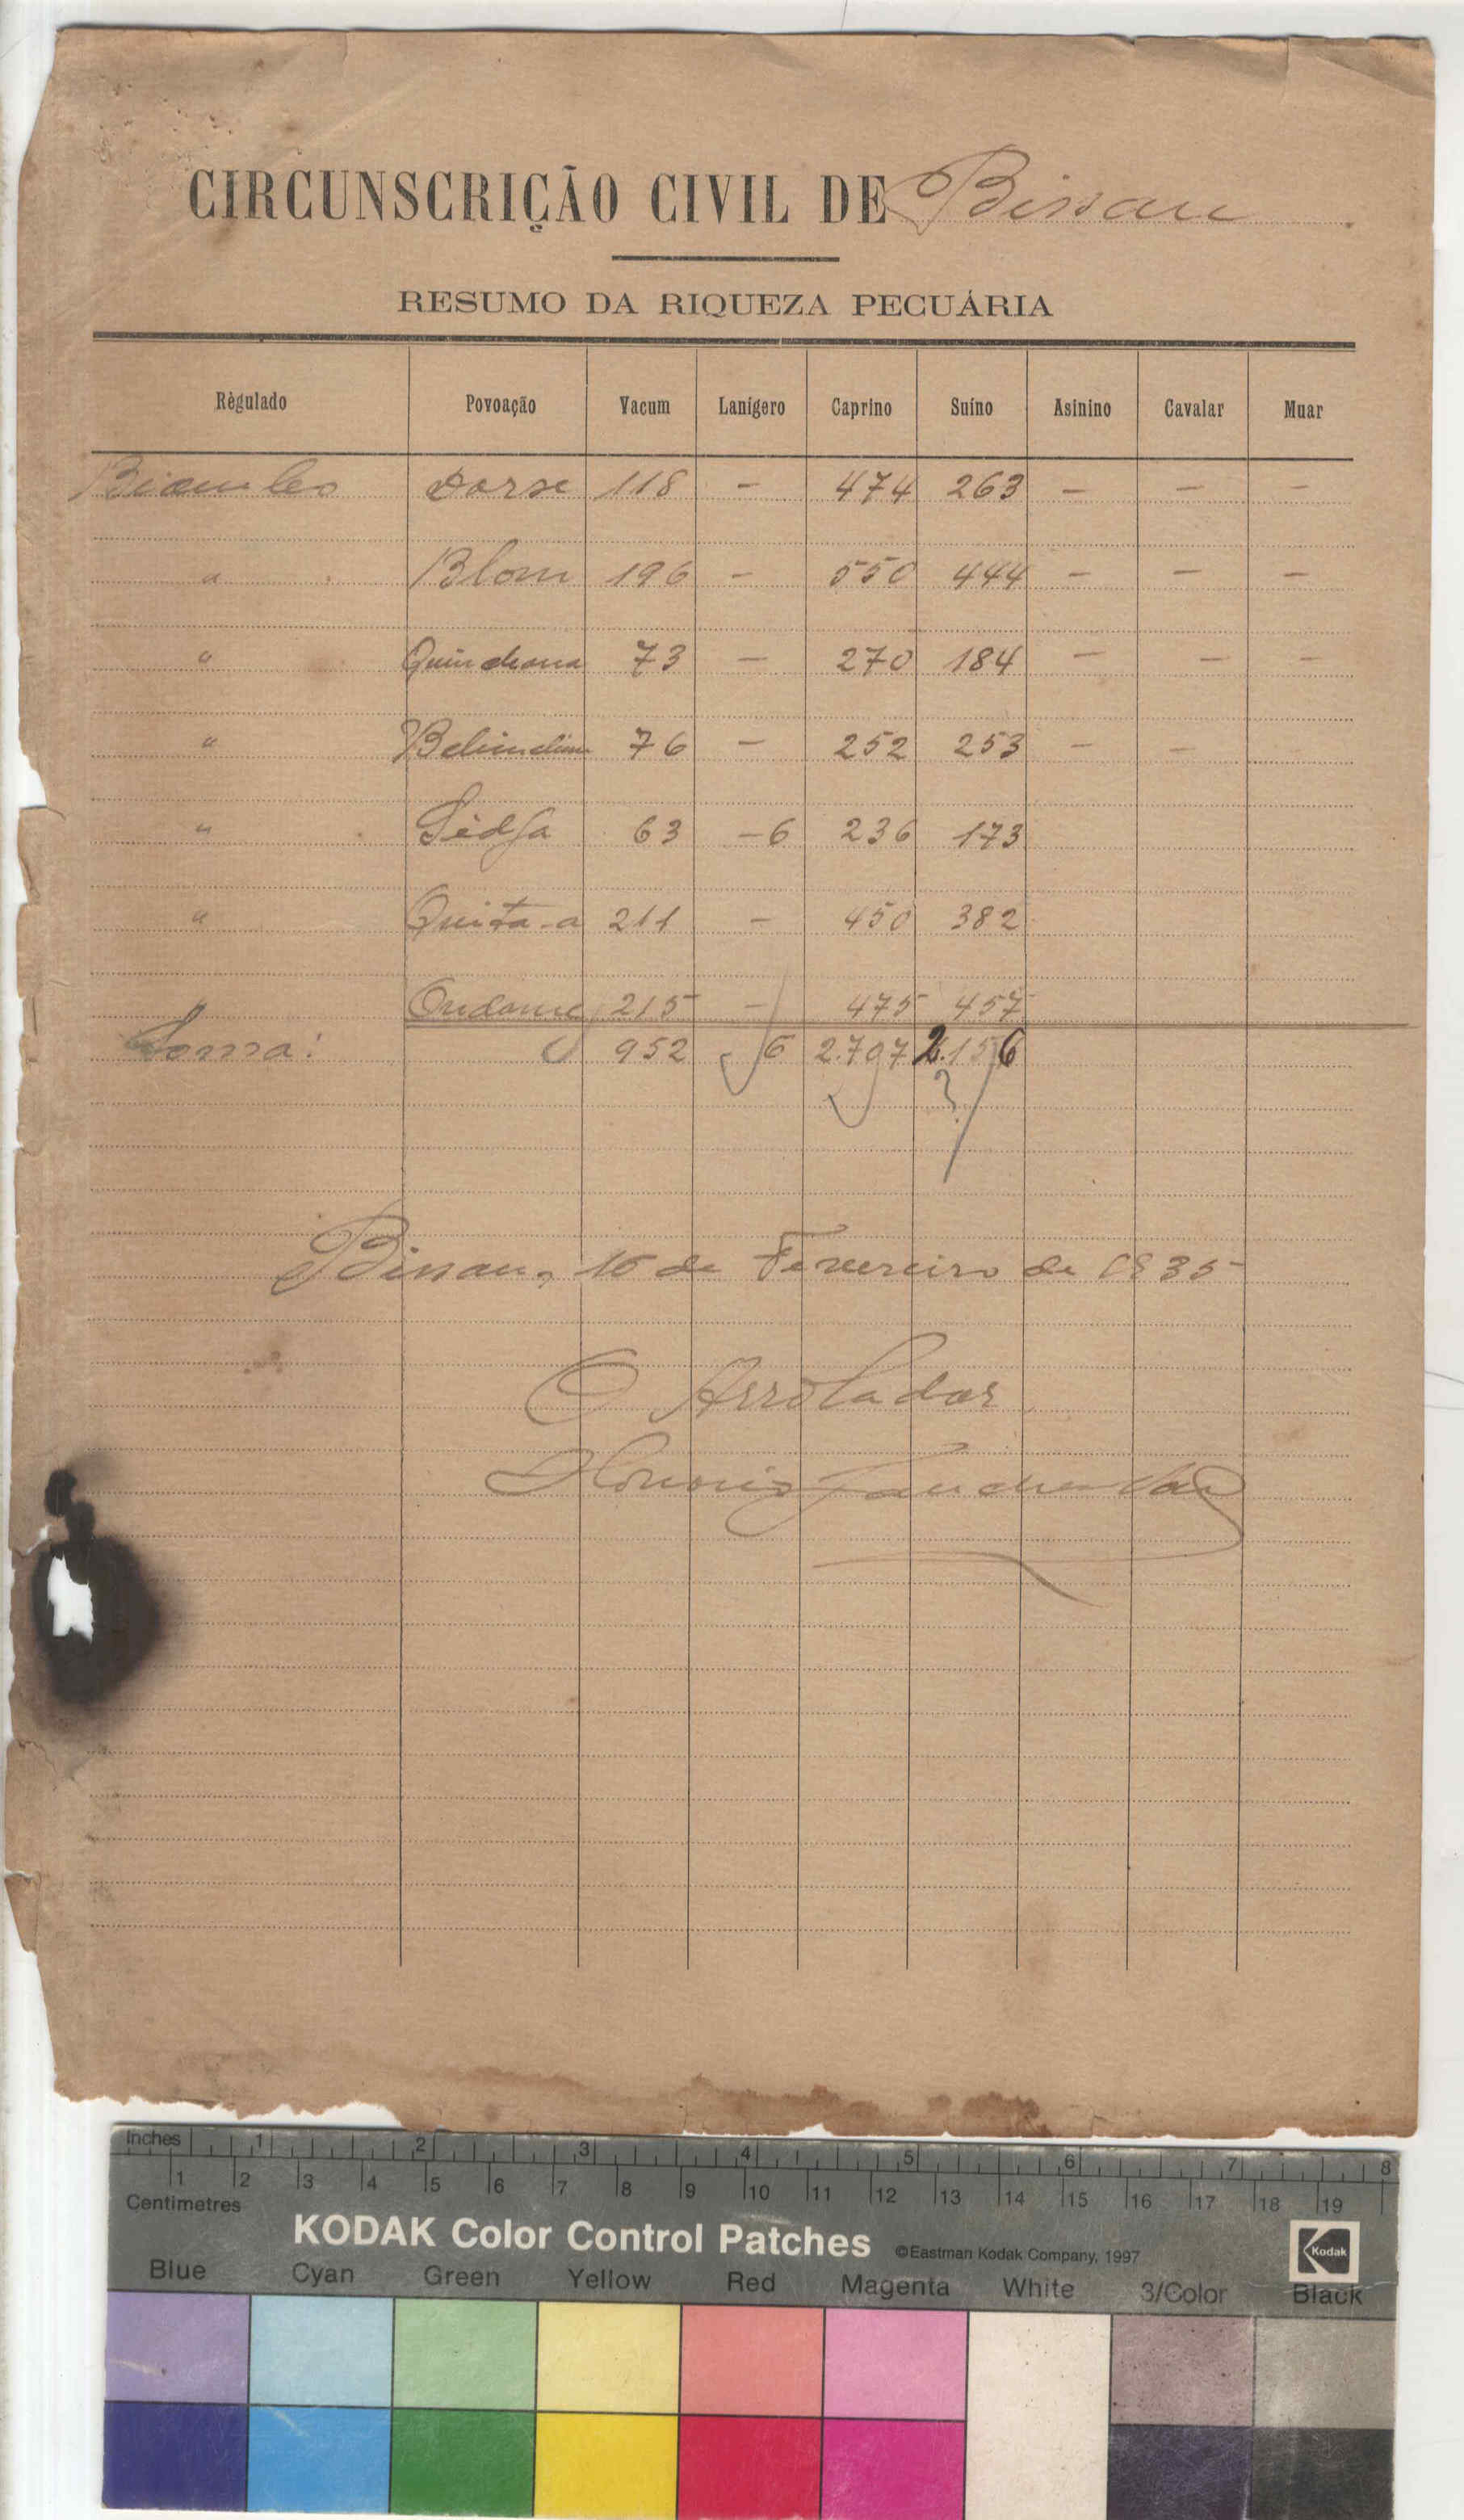 CIRCUNSCRIÇÃO CIVIL DE Bissau
RESUMO DA RIQUEZA PECUÁRIA
Règulado Povoação Vacum Lanígero Caprino Suíno Asinino Cavalar Muar
Biombo Dorse 118 - 474 263 - - -
" Blom 196 - 550 444 - - -
" 73 - 270 184 - - -
" 76 - 252 253 - -
" 63 - 6 236 173
" Quita-a 211 - 450 382
Ondame 215 - 475 457
Soma: 952 6 2.707 2.156
?
Bissau, 16 de Fevereiro de 1935
O Arrolador
Inches 1 2 3 4 5 6 7 8
1 2 3 4 5 6 7 8 9 10 11 12 13 14 15 16 17 18 19
Centimetres
KODAK Color Control Patches ©Eastman Kodak Company, 1997 Kodak
Blue Cyan Green Yellow Red Magenta White 3/Color Black